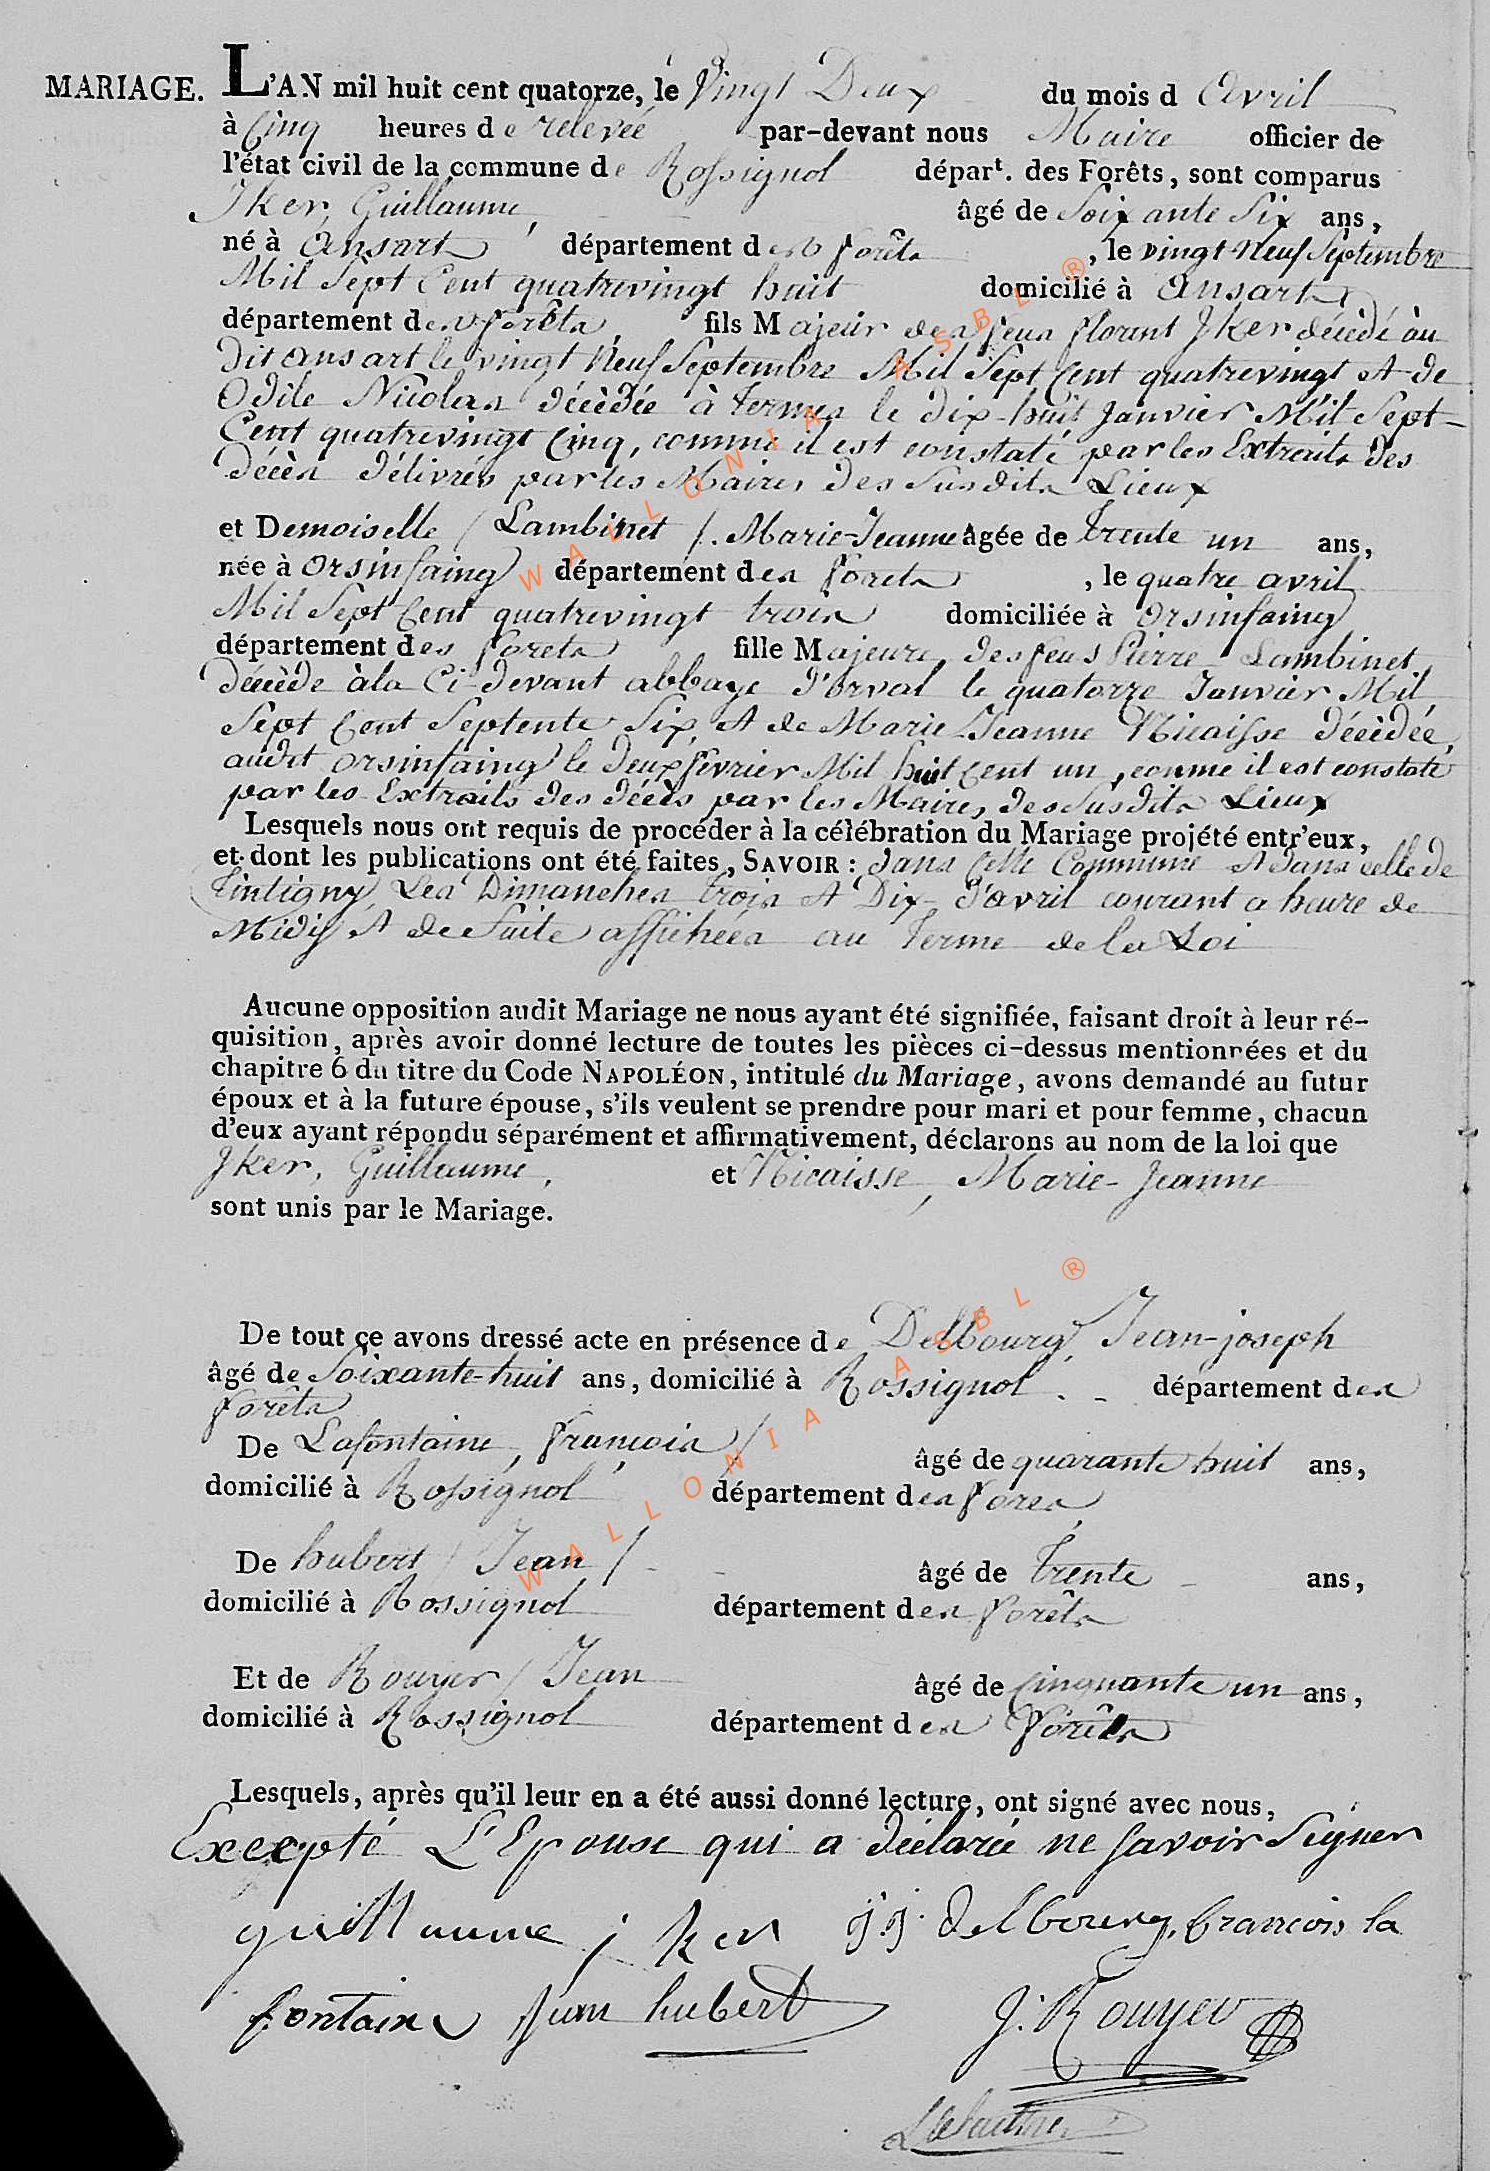 MARIAGE. L'AN mil huit cent quatorze, le Vingt Deux du mois d Avril
à Cinq heures de relevée par-devant nous Maire officier de
l'état civil de la commune de Rossignol départ. des Forêts, sont comparus
Jker, Guillaume, âgé de Soixante Six ans,
né à Ansart département des forêts, le vingt Neuf Septembre
Mil Sept Cent quatrevingt huit domicilié à Ansart
département des forêts fils Majeur des feus florent Jker décédé au
dit ansart le vingt Neuf Septembre Mil Sept Cent quatrevingt et de
Odile Nicolas décédée à termes le dix-huit Janvier Mil Sept
Cent quatrevingt Cinq, comme il est constaté par les Extraits des
décès délivrés par les Maires des Susdits Lieux
et Demoiselle / Lambinet /. Marie-Jeanne âgée de trente un ans,
née à Orsinfaing département des forets, le quatre avril
Mil Sept Cent quatrevingt trois domiciliée à Orsinfaing
département des forets fille Majeure, des feus Pierre Lambinet,
décède à la Ci-devant abbaye d'orval le quatorze Janvier Mil
Sept Cent Septente Six, et de Marie Jeanne Nicaisse décédée,
audit orsinfaing le deux fevrier Mil huit Cent un, comme il est constaté
par les Extraits des décès par les Maires des Susdits Lieux
Lesquels nous ont requis de procéder à la célébration du Mariage projété entr'eux,
et dont les publications ont été faites, SAVOIR : dans Cette Commune et dans celle de
Tintigny, Les Dimanches trois et Dix d'avril courant a heure de
Midis et de Suite affichées au terme de la Loi
Aucune opposition audit Mariage ne nous ayant été signifiée, faisant droit à leur ré-
quisition, après avoir donné lecture de toutes les pièces ci-dessus mentionnées et du
chapitre 6 du titre du Code NAPOLÉON, intitulé du Mariage, avons demandé au futur
époux et à la future épouse, s'ils veulent se prendre pour mari et pour femme, chacun
d'eux ayant répondu séparément et affirmativement, déclarons au nom de la loi que
Jker, Guillaume, et Nicaisse, Marie-Jeanne
sont unis par le Mariage.
De tout ce avons dressé acte en présence de Delbourg, Jean-joseph
âgé de Soixante-huit ans, domicilié à Rossignol département des
forêts
De Lafontaine, françois / âgé de quarante huit ans,
domicilié à Rossignol département des fores
De hubert / Jean / âgé de trente ans,
domicilié à Rossignol département des forêts
Et de Rouyer / Jean âgé de Cinquante un ans,
domicilié à Rossignol département des forêts
Lesquels, après qu'il leur en a été aussi donné lecture, ont signé avec nous,
Excepté L'Epouse qui a déclarée ne savoir Signer
guillaume jker j j delbourg. francois la
fontaine Jean hubert J. Rouyer
WALLONIA ASBL ®
WALLONIA ASBL ®